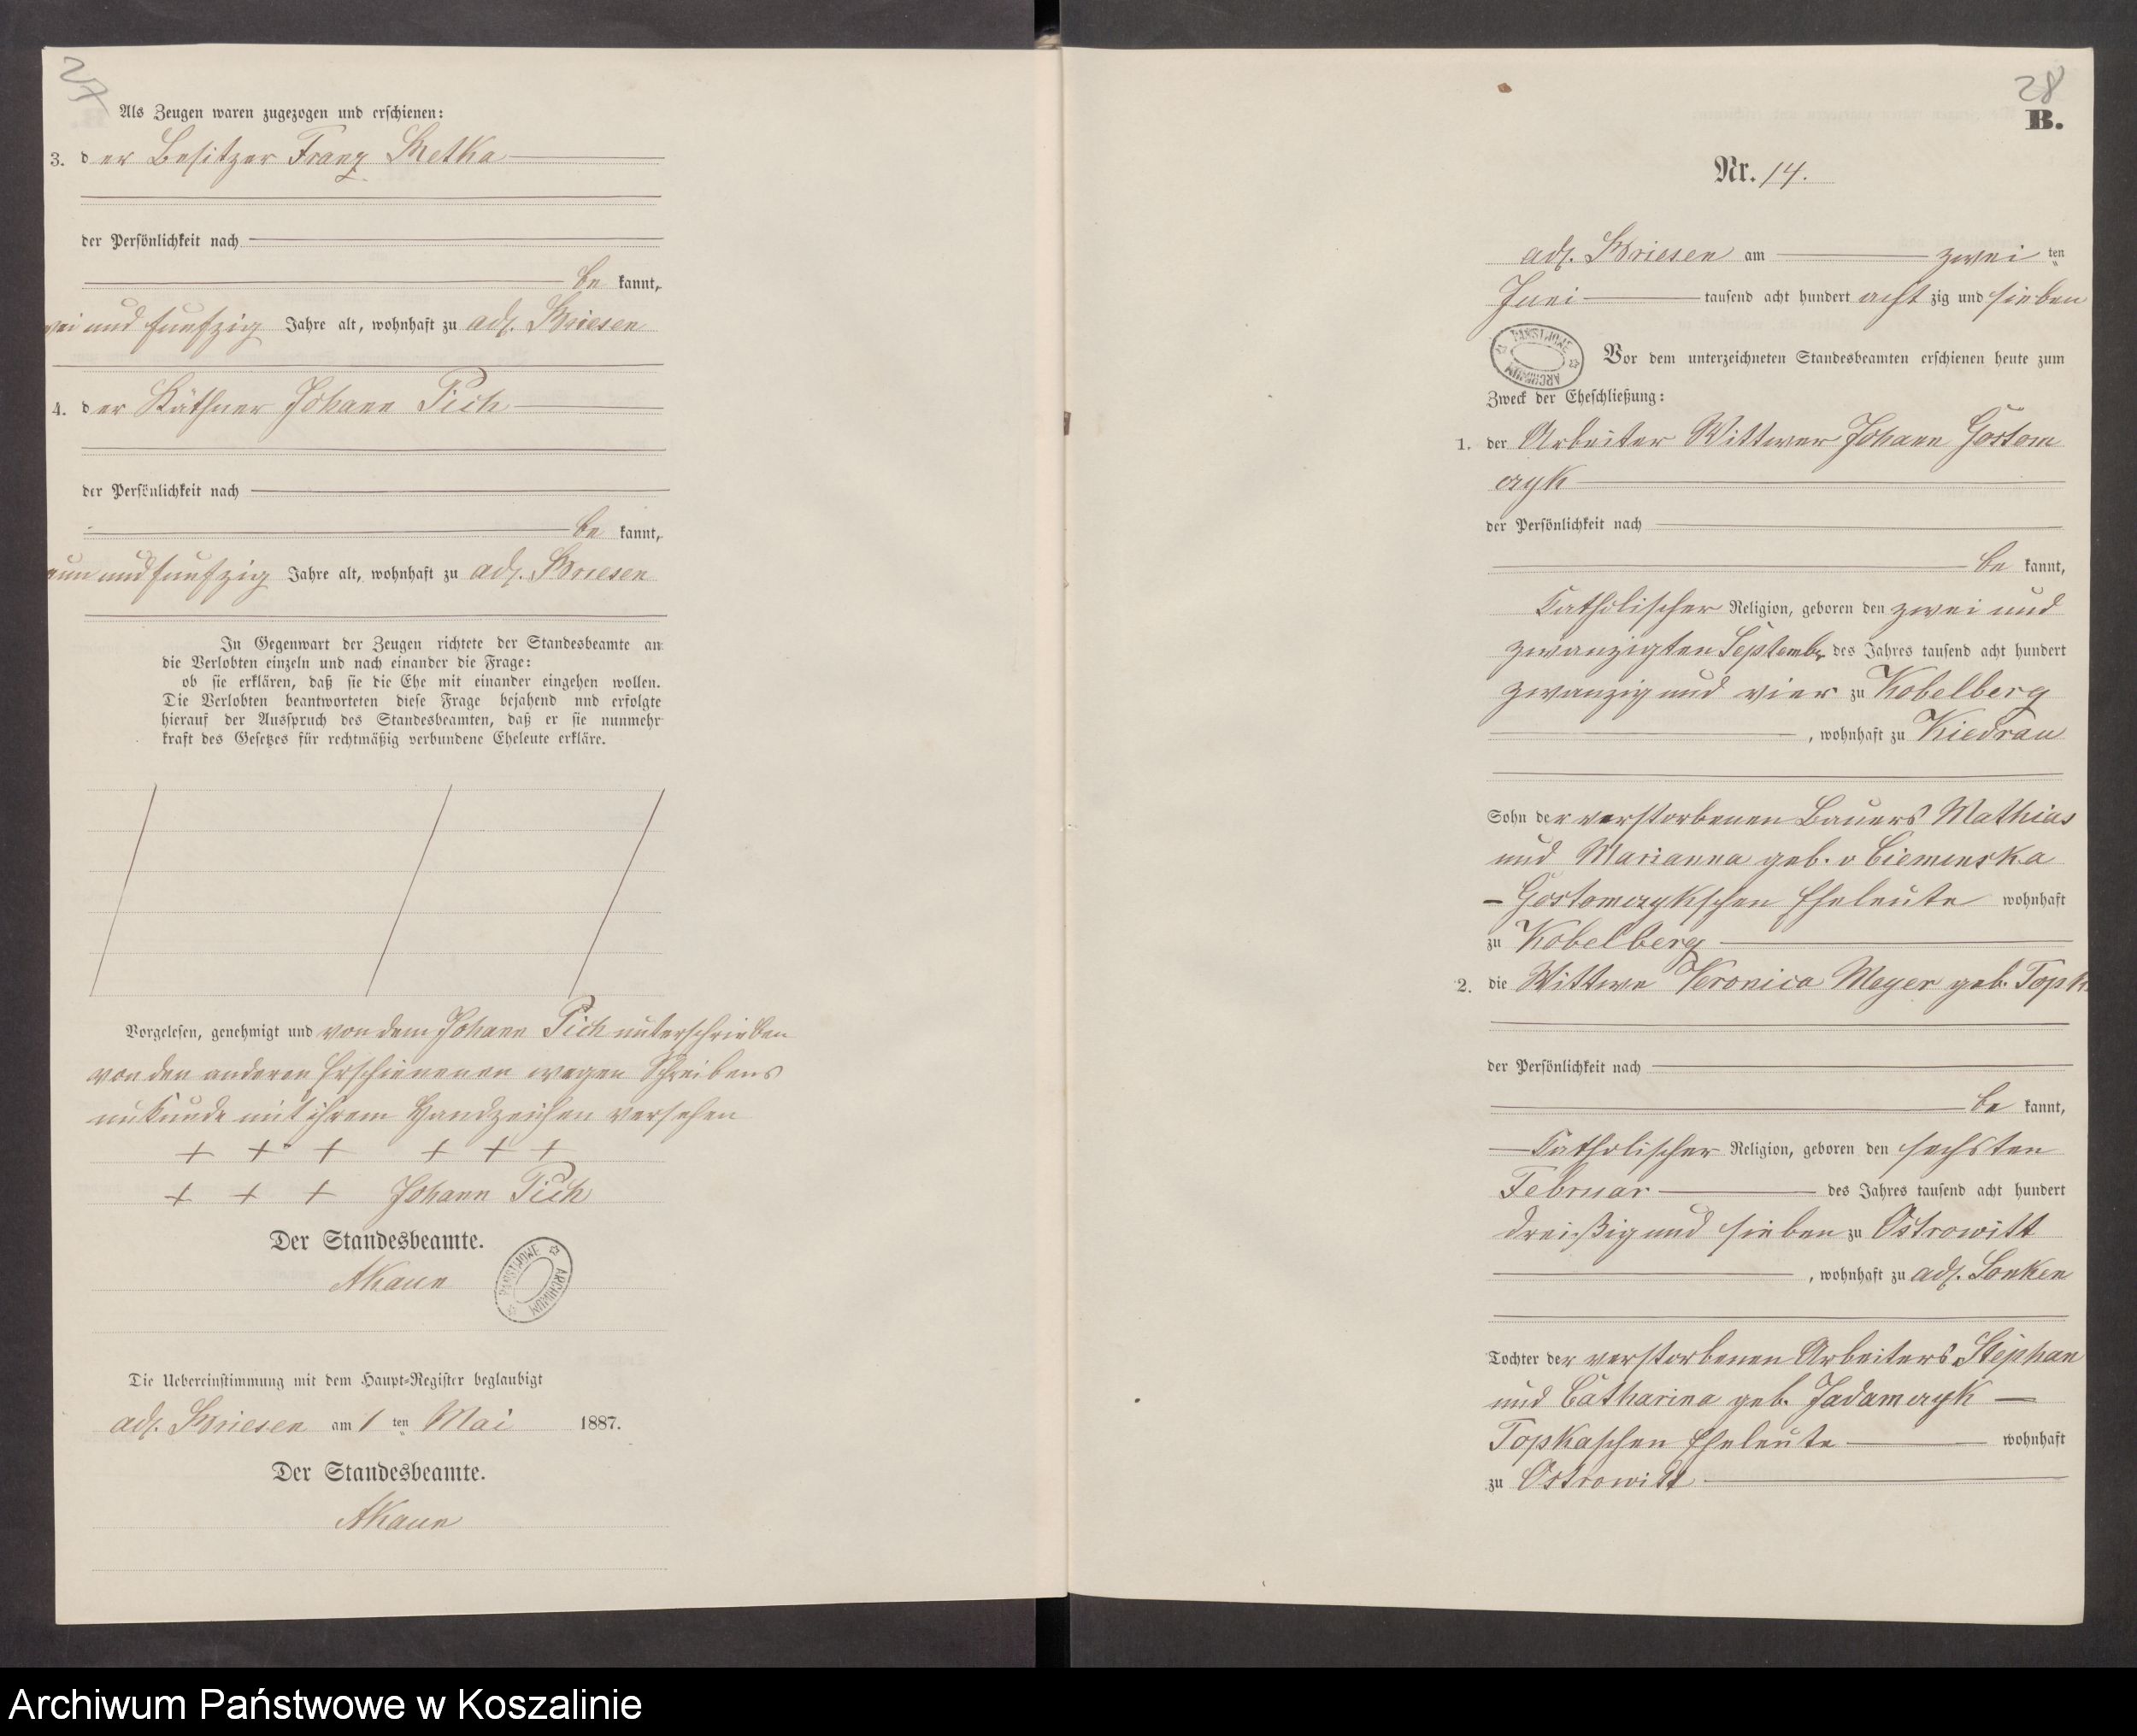 27
Als Zeugen waren zugezogen und erschienen:
3. der Besitzer Franz
der Persönlichkeit nach
be kannt,
und funfzig Jahre alt, wohnhaft zu adl. Briesen
4. der Käthner Johann Pich
der Persönlichkeit nach
be kannt,
und funfzig Jahre alt, wohnhaft zu adl. Briesen
In Gegenwart der Zeugen richtete der Standesbeamte an
die Verlobten einzeln und nach einander die Frage:
ob sie erklären, daß sie die Ehe mit einander eingehen wollen.
Die Verlobten beantworteten diese Frage bejahend nnd erfolgte
hierauf der Ausspruch des Standesbeamten, daß er sie nunmehr
kraft des Gesetzes für rechtmäßig verbundene Eheleute erkläre.
Vorgelesen, genehmigt und von dem Johann Pich unterschrieben
von den anderen Erschienenen wegen Schreibens
unkunde mit ihrem Handzeichen versehen
+ + + + + +
+ + + Johann Pich
Der Standesbeamte.
PAŃSTWOWE ARCHIWUM
Die Uebereinstimmung mit dem Haupt-Register beglaubigt
adl. Briesen am 1 ten Mai 1887.
Der Standesbeamte.
28
B.
Nr. 14.
adl. Briesen am zwei ten
Juni tausend acht hundert acht zig und sieben
PAŃSTWOWE ARCHIWUM
Vor dem unterzeichneten Standesbeamten erschienen heute zum
Zweck der Eheschließung:
1. der Arbeiter Wittwer Johann Gostom
czyk
der Persönlichkeit nach
be kannt,
Catholischer Religion, geboren den zwei und
zwanzigten Septembr des Jahres tausend acht hundert
zwanzig und vier zu Kobelberg
, wohnhaft zu Kiedrau
Sohn der verstorbenen Bauers Mathias
und Marianna geb. v Cieminska
- Gostomczykschen Eheleute wohnhaft
zu Kobelberg
2. die Wittwe Veronica Meyer geb. Topk
der Persönlichkeit nach
be kannt,
Catholischer Religion, geboren den sechsten
Februar des Jahres tausend acht hundert
dreißig und sieben zu Ostrowitt
, wohnhaft zu adl. Lonken
Tochter der verstorbenen Arbeiters Stephan
und Catharina geb. Jadamczyk
Topkaschen Eheleute wohnhaft
zu Ostrowitt
Archiwum Państwowe w Koszalinie